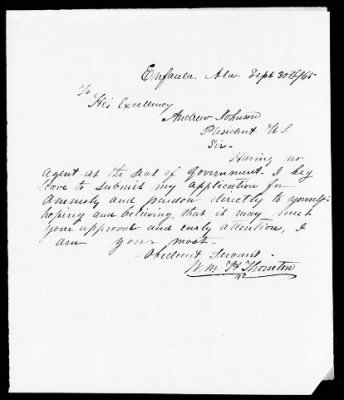 Eufaula. Ala. Sept 30th/65
To
His Excellency
Andrew Johnson
President U S
Sir-
Having no
agent at the seat of Government. I beg
leave to submit my application for
amnesty and pardon directly to yourself-
hoping and believing that it may meet
your approval and early attention, I
am your most-
Obedient Servant-
Wm H Thornton